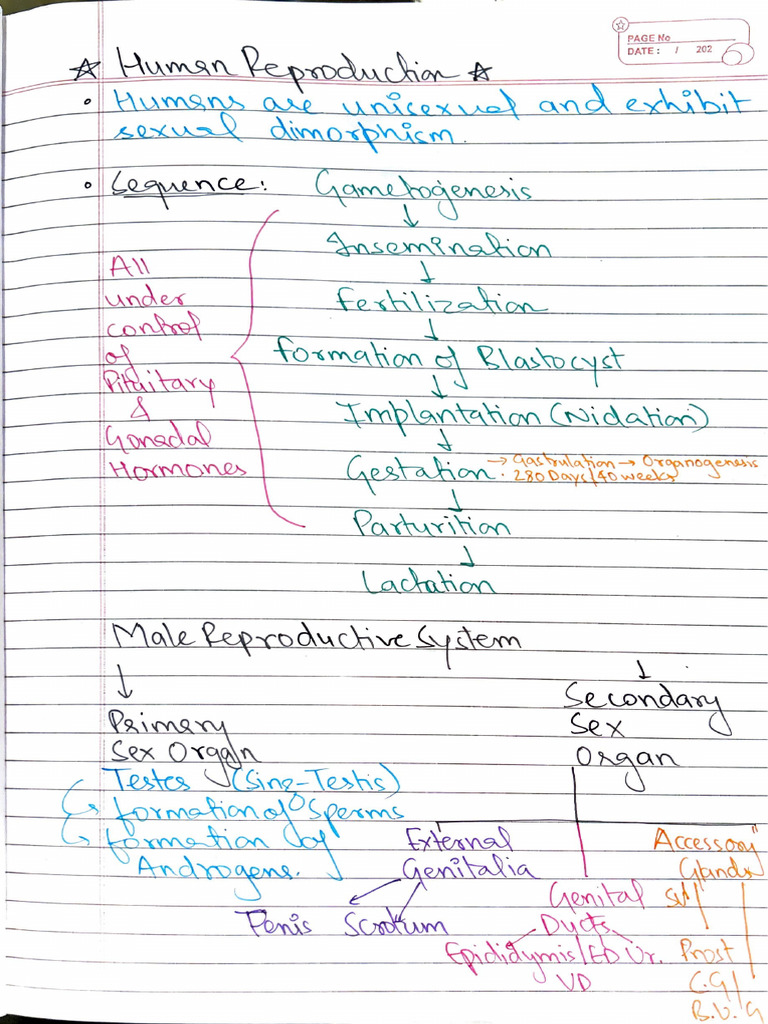 PAGE No
DATE: / 202
☆ Human Reproduction ☆
• Humans are unisexual and exhibit
sexual dimorphism.
• Sequence: Gametogenesis
↓
Insemination
↓
Fertilization
↓
formation of Blastocyst
↓
Implantation (Nidation)
↓
Gestation. → Gastrulation → Organogenesis
280 Days/40 weeks
↓
Parturition
↓
Lactation
All
under
control
of
Pituitary
&
Gonadal
Hormones
Male Reproductive System
↓ ↓
Primary
Sex Organ
Testes (Sing-Testis)
formation of Sperms
formation of
Androgens.
Secondary
Sex
Organ
External
Genitalia
Penis Scrotum
Genital
Ducts
Epididymis/ED Ur.
VD
Accessory
Glands
SV
Prost
C.G/
B.U.G